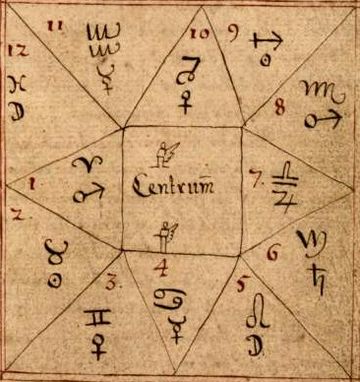 11
10
9
12
8
1
Centrum̄
7
2
6
3
4
5